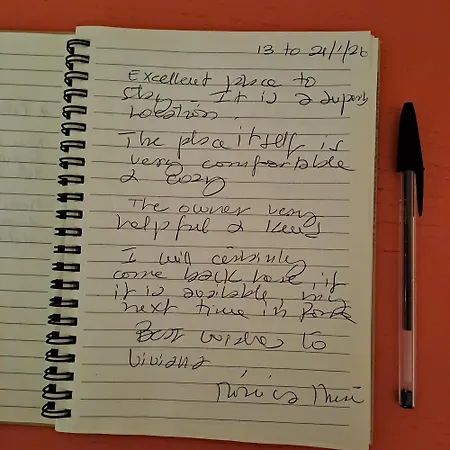 13 to 21/1/26
Excellent place to
stay. It is a superb
location.
The place itself is
very comfortable
& cosy
The owner very
helpful & kind
I will certainly
come back here, if
it is available, my
next time in
Best wishes to
Viviana